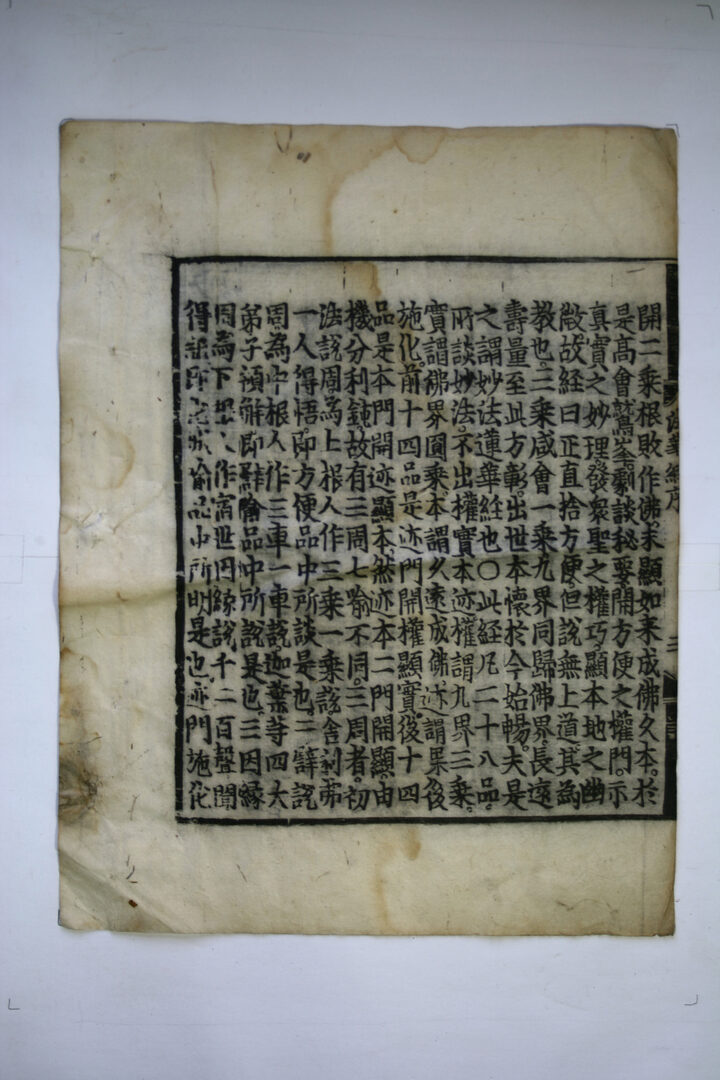 法華經序
三
開二乘根敗作佛未顯如來成佛久本。於
是高會鷲峯豪談秘要開方便之權門。示
真實之妙理。發衆聖之權巧顯本地之幽
故經曰正直捨方便但說無上道。其為
教也。三乘咸會一乘九界同歸佛界。長遠
壽量至此方彰。出世本懷於今始暢。夫是
之謂妙法蓮華經也〇此經凡二十八品。
所談妙法不出權實本迹權謂九界三乘。
實謂佛界圓乘。本謂久遠成佛。迹謂果後
施化。前十四品是迹門開權顯實。後十四
品是本門開迹顯本。然迹本二門開顯。由
機分利鈍。故有三周七喻不同。三周者。初
法說周為上根人作三乘一乘說舍利弗
一人得悟。即方便品中所談是也。二譬說
周為中根人作三車一車說。迦葉等四大
弟子領解即譬喻品中所說是也。三因緣
周為下根人作宿世因緣說千二百聲聞
得記即化城喻品中所明是也。迹門施化